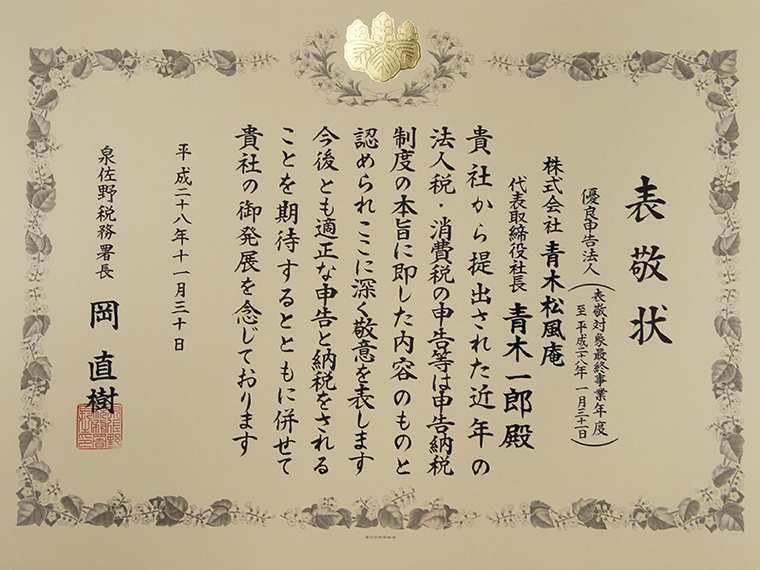 表敬状
優良申告法人（表敬対象最終事業年度
至 平成二八年 一月三十一日）
株式会社 青木松風庵
代表取締役社長 青木一郎 殿
貴社から提出された近年の
法人税・消費税の申告等は申告納税
制度の本旨に即した内容のものと
認められここに深く敬意を表します
今後とも適正な申告と納税をされる
ことを期待するとともに併せて
貴社の御発展を念じております
平成二十八年十一月三十日
泉佐野税務署長 岡 直樹